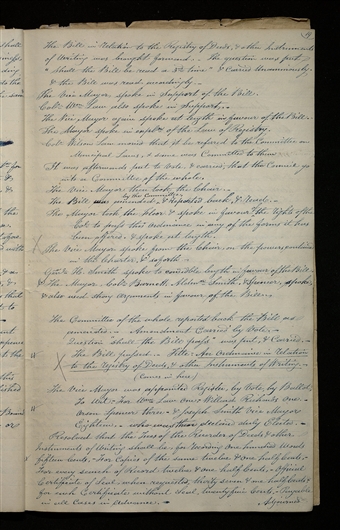 The Bill in Relation to the Registry of Deeds, & other Instruments
of Writing was brought forward. The question was put,
"Shall the Bill be read a 3rd time" & Carried Unanimously
& the Bill was read accordingly.
The Vice Mayor spoke in Support of the Bill.
Colr. Wm. Law also spoke in Support.
The Vice Mayor again spoke at length in favour of the Bill.
The Mayor spoke in explan. of the Law of Registry.
Colr. Wilson Law moved that it be referred to the Committee on
Municipal Laws, & same was Committed to them
It was afterwards put to Vote, & carried, that the Council go
into a Committee of the whole.
The Vice Mayor then took the Chair.
by the Committee
The Bill was amended, & Reported back, & Read.
The Mayor took the floor & spoke in favour of the Rights of the
Col. to pass this ordinance in any of the forms it has
been offered, & spoke at length.
The Vice Mayor spoke from the Chair, on the powers contained
in the Charter, & so forth.
Geo. A. Smith spoke to considble length in favour of the Bill
& The Mayor, Colr. Bennett, Aldmn. Smith & Spencer, spoke,
& also used strong arguments in favour of the Bill.
The Committee of the whole reported back the Bill as
amended. Amendment Carried by Vote.
Question "Shall the Bill pass" was put, & Carried.
The Bill passed. Title: An Ordinance in Relation
to the registry of Deeds, & other Instruments of Writing.
The Vice Mayor was appointed Register by Vote, by Ballot,
To Wit: For Wm. Law one, Willard Richards one
Orson Spencer three & Joseph Smith Vice Mayor
Eighteen. who was then declared duly Elected.
Resolved that the Fees of the Recorder of Deeds & other
Instruments of Writing shall be, for Recording one hundred Words
fifteen Cents. For Copies of the same twelve & one half Cents.
For every search of Record twelve & one half Cents. Official
Certificate of Seal, when requested, thirty seven & one half Cents &
for such Certificates without Seal, twenty five Cents. Payable
in all Cases in Advance.
Adjourned